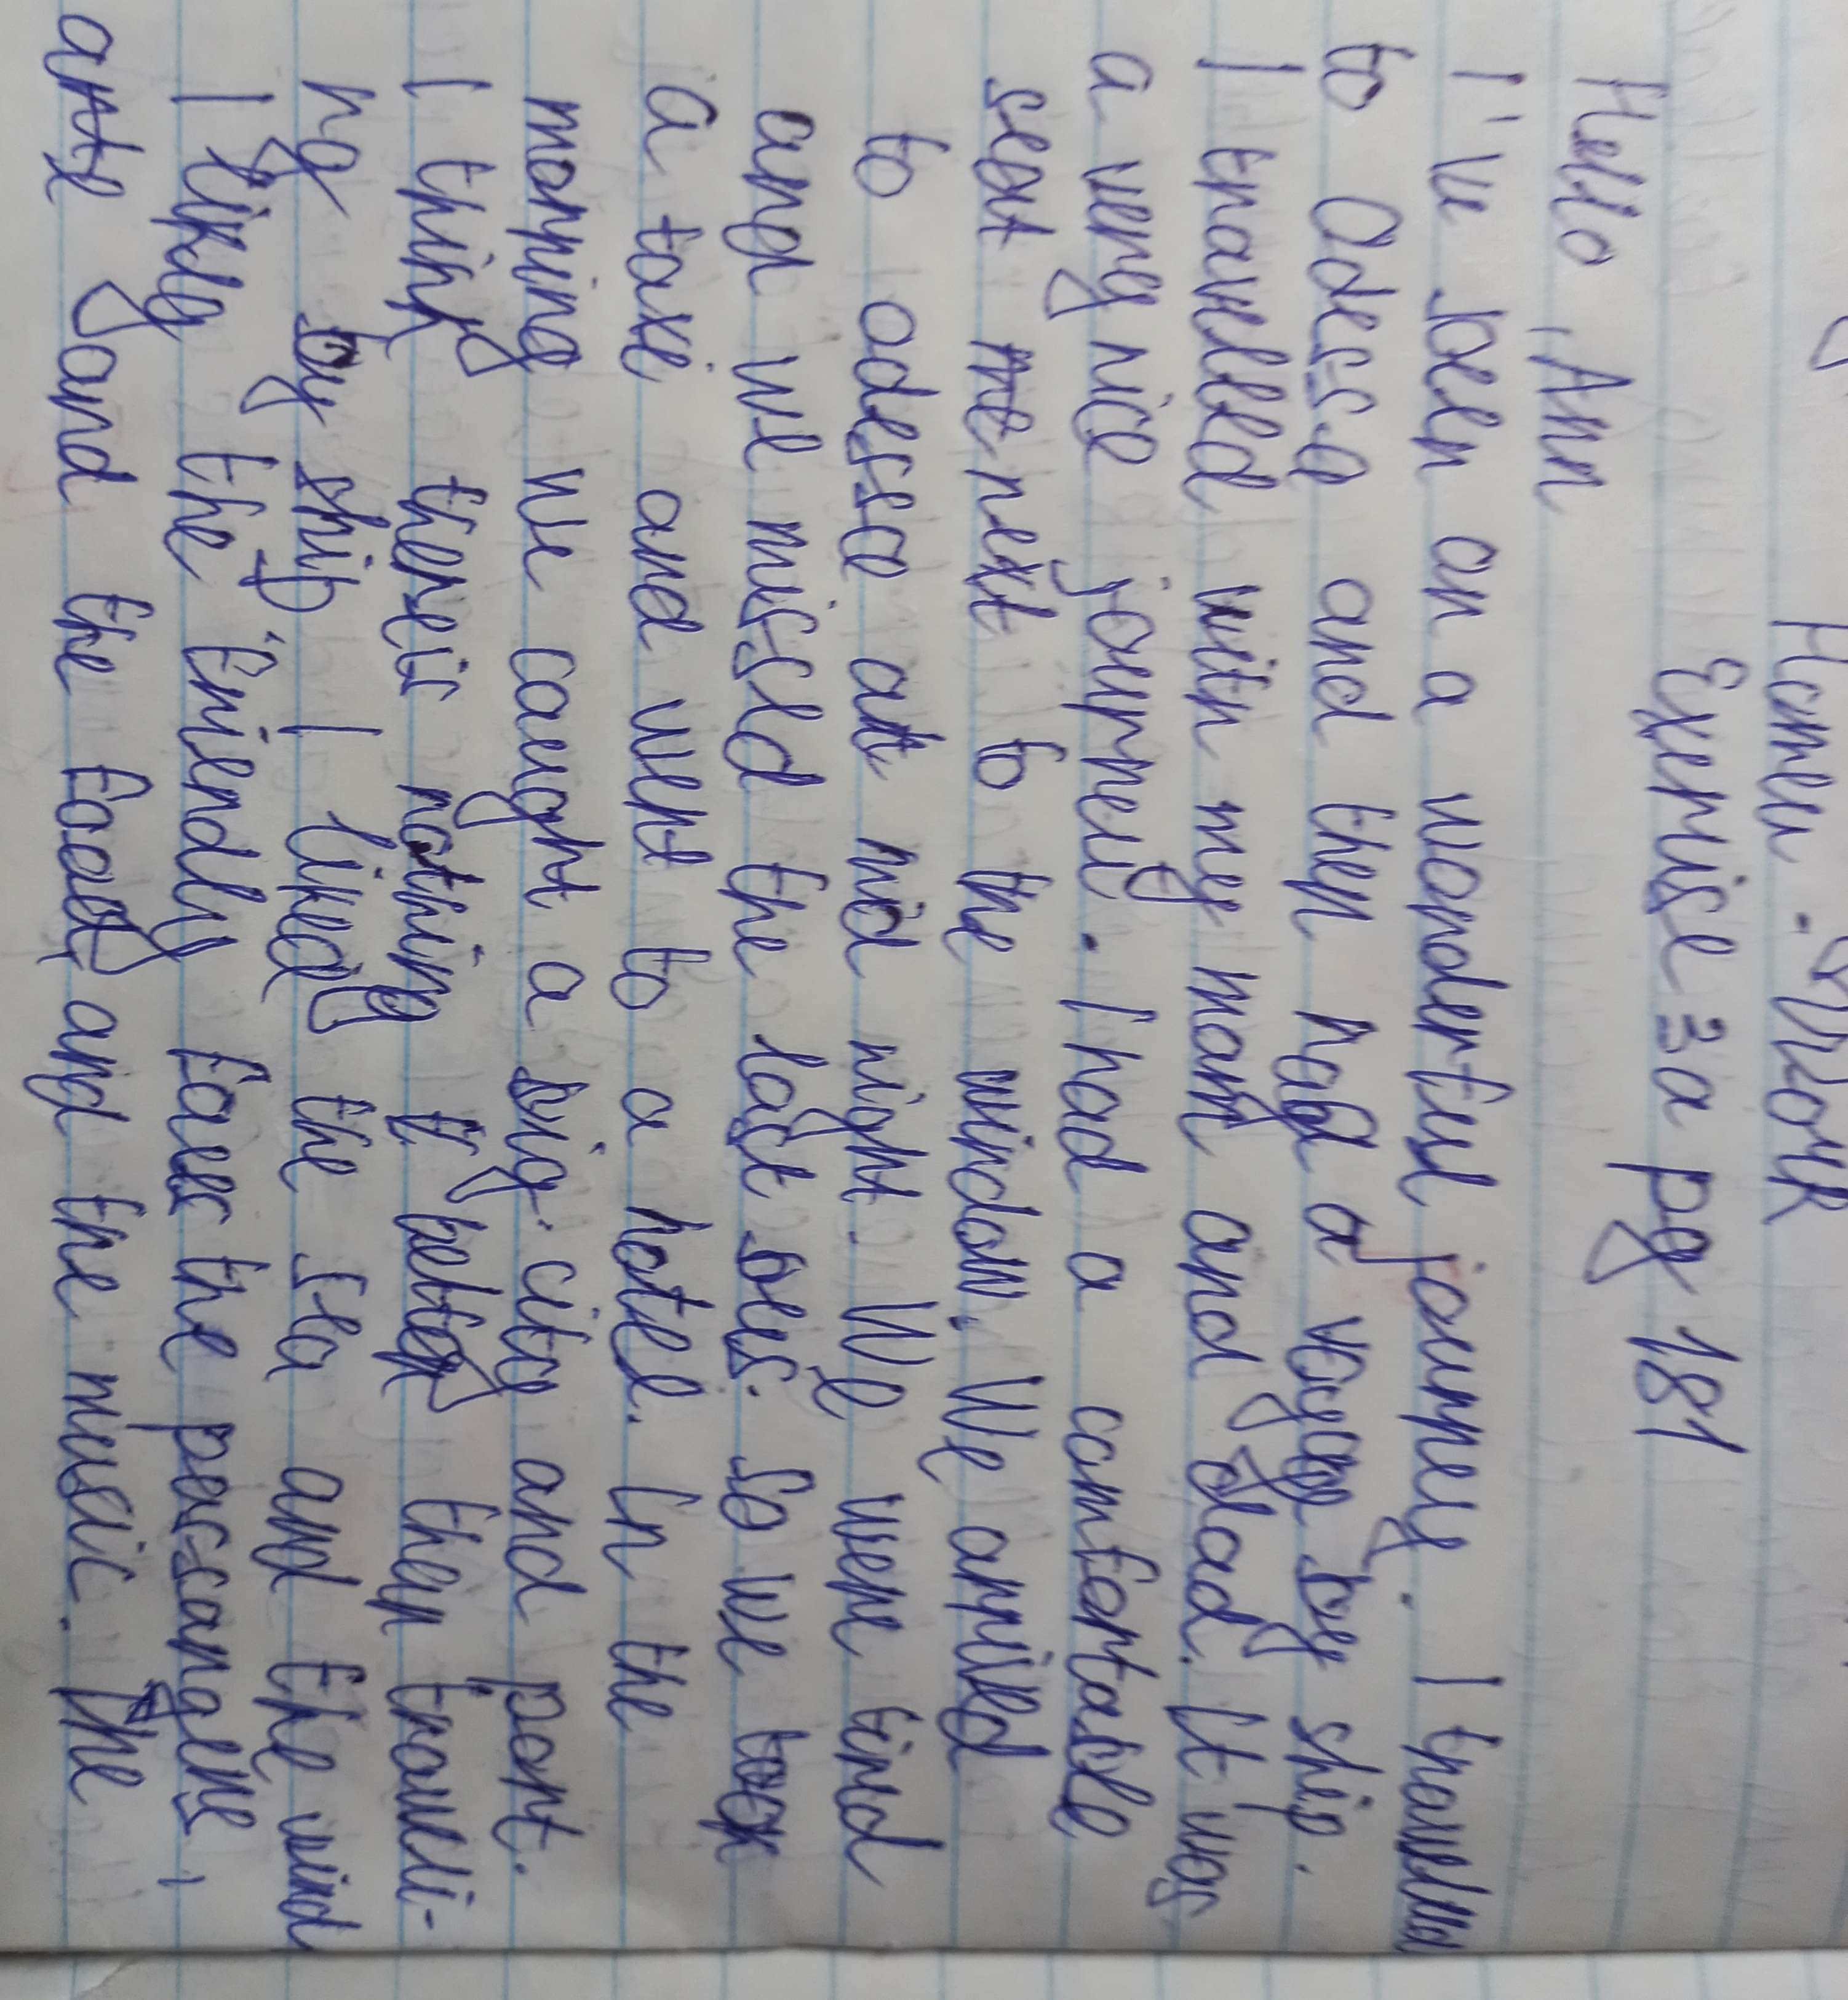 Home-Work
Exercise 3a pg 181
Hello, Ann
I've been on a wonderful journey. I travelled
to Odessa and then had a voyage by ship.
I travelled with my mom and dad. It was
a very nice journey. I had a comfortable
seat next to the window. We arrived
to odessa at mid night. We were tired
and we missed the last bus. So we took
a taxi and went to a hotel. In the
morning we caught a big city and port.
I think there is nothing better then traveli-
ng by ship. I liked the sea and the wind
I liked the friendly faces the passangers,
and the food and the music. The